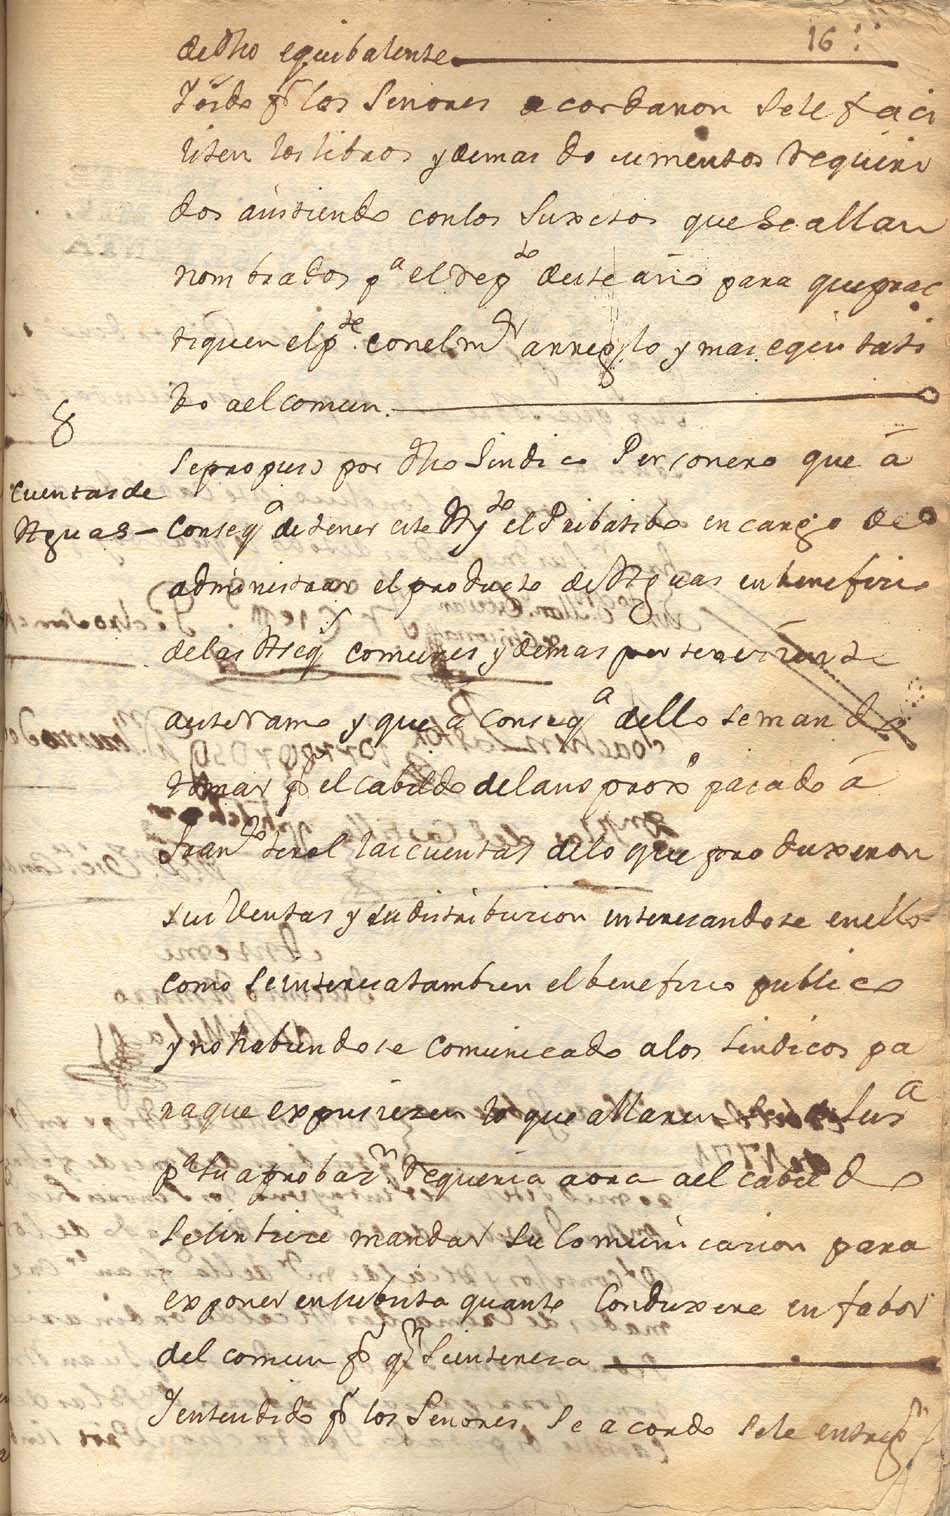 16
de dho equibalente
Yoido pr los Señores acordaron sele faci
liten los libros y demas documentos requiri
dos asistiendo con los suxetos que se allan
nombrados pa el repto deste año para que prac
tiquen el pte. con el mor arreglo y mas equitati
bo a el comun.
8
Se propuso por dho Sindico Personero que á
Cuentas de
Aguas - Conseqa de tener este Ayto el Pribatibo encargo de
administrar el producto de Aguas en beneficio
de las Aseqs comunes y demas
deste ramo y que a conseqa dello se mando
tomar pr el cabildo del año proxo pasado á
Franco terol las cuentas delo que produxeron
sus Ventas y su distribucion interesandose en ello
como se interesa tambien el beneficio publico
y no habiendose comunicado a los sindicos pa
ra que expusiezen lo que allaren
pa su aprobazn. requeria aora a el cabildo
se sirbiese mandar su Comunicacion para
exponer en su bista quanto Conduxere en fabor
del comun pr qn se interesa
Yentendido pr los Señores se acordo sele entreg